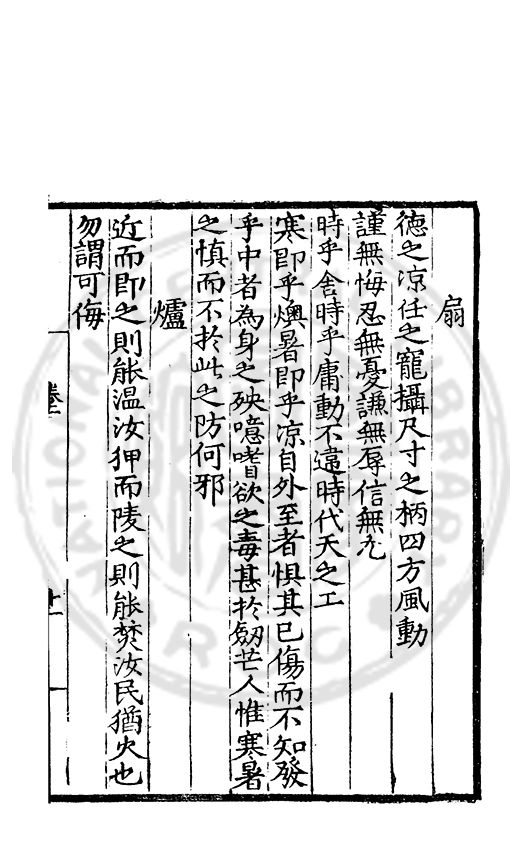 扇
德之凉任之寵攝尺寸之柄四方風動
謹無悔忍無憂謙無辱信無尤
時乎舍時乎庸動不違時代天之工
寒即乎燠暑即乎凉自外至者惧其已傷而不知發
乎中者為身之殃噫嗜欲之毒甚於劒芒人惟寒暑
之慎而不於此之防何邪
爐
近而即之則能温汝狎而陵之則能焚汝民猶火也
勿謂可侮
十一
NATIONAL CENTRAL LIBRARY